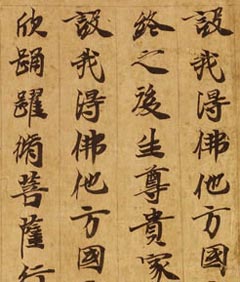 設我得佛他方國
終之後生尊貴家
設我得佛他方國
欣踊躍脩菩薩行